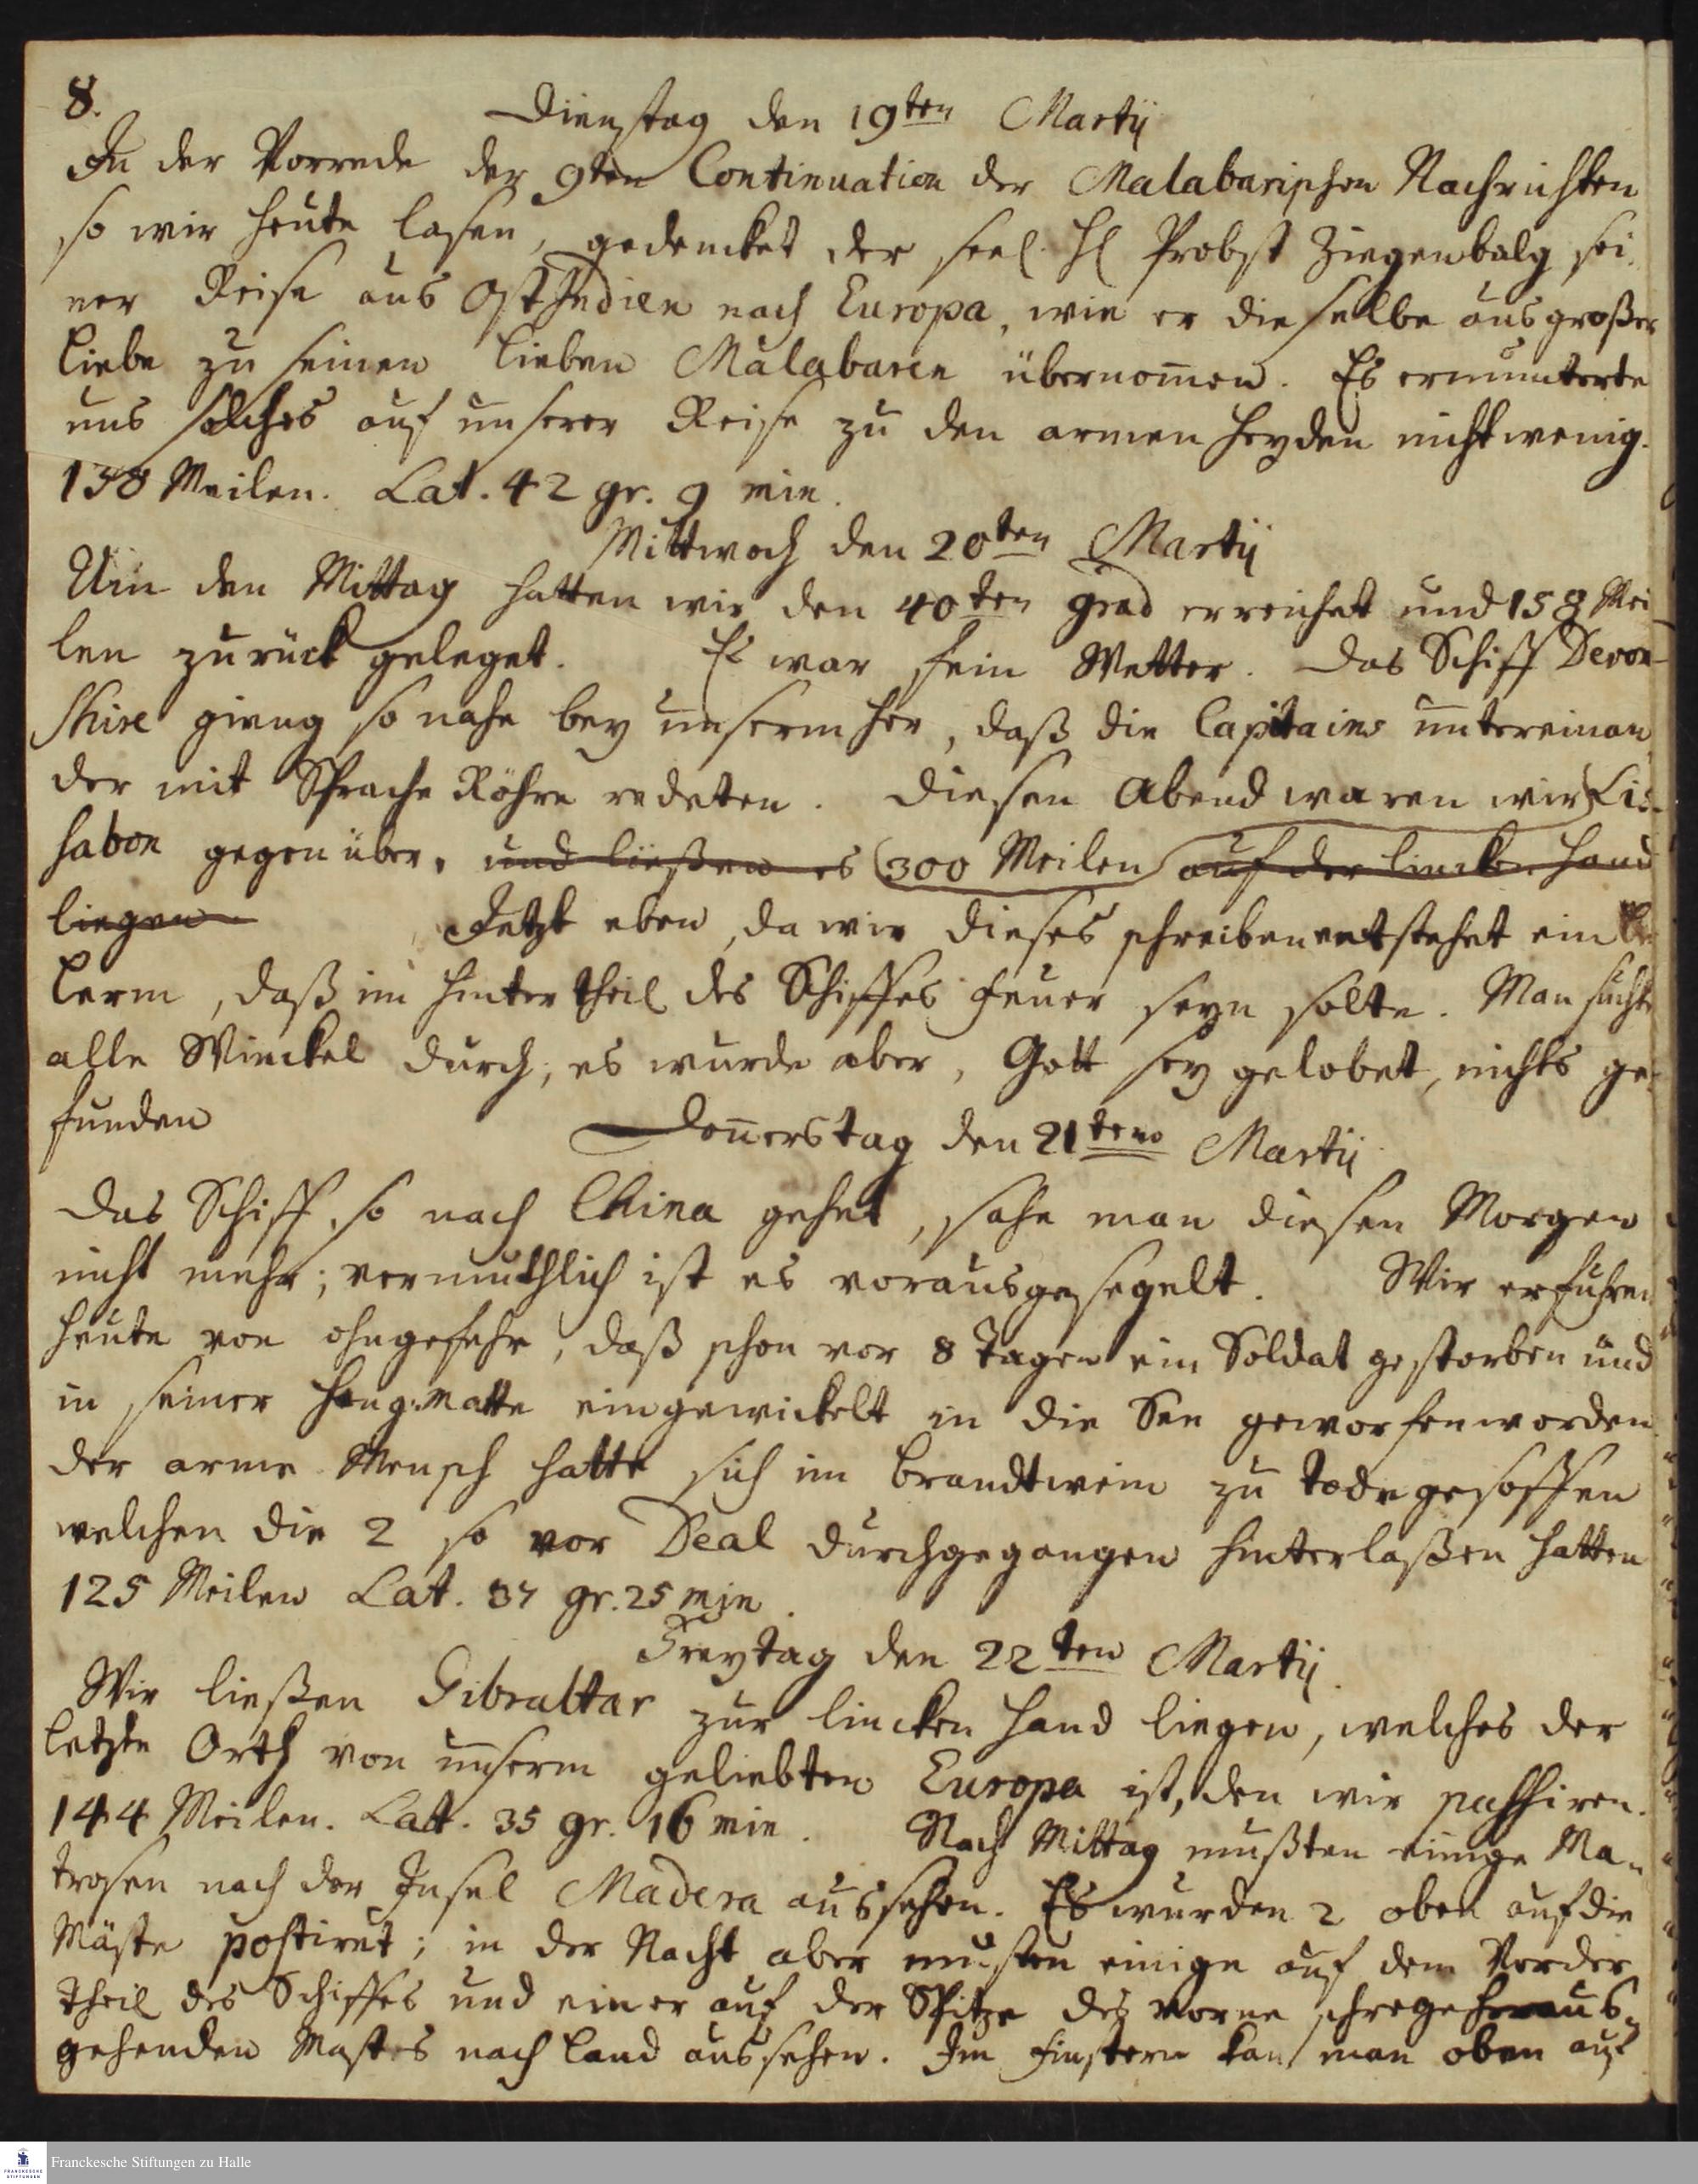 8.
Dienstag den 19ten Martij
In der Vorrede der 9ten Continuation der Malabarischen Nachrichten
so wir heute lasen, gedencket der seel. H Probst Ziegenbalg sei¬
ner Reise aus OstIndien nach Europa, wie er dieselbe aus großer
Liebe zu seinen lieben Malabaren übernom̄en. Es ermunterte
uns solches auf unserer Reise zu den armen Heyden nicht wenig.
138 Meilen. Lat. 42 gr. 9 min.
Mittwoch den 20ten Martij
Um den Mittag hatten wir den 40ten grad erreichet und 158 Mei
len zurück geleget. Es war fein Wetter. Das Schiff Devon-
Shire gieng so nahe bey unserm her, daß die Capitains untereinan
der mit Sprache Röhre redeten. Diesen Abend waren wir Lis-
sabon gegen über. und ließen es (300 Meilen) auf der lincken Hand
liegen. Jetzt eben, da wir dieses schreiben entstehet ein
Lerm, daß im Hinter theil des Schiffes Feuer seyn solte. Man suchte
alle Winckel durch; es wurde aber, Gott sey gelobet, nichts ge-
funden
Don̄erstag den 21ten Martij
Das Schiff, so nach China gehet, sahe man diesen Morgen
nicht mehr; vermuthlich ist es vorausgesegelt. Wir erfuhren
heute von ohngefehr, daß schon vor 8 Tagen ein Soldat gestorben und
in seiner Heng-Matte eingewickelt in die See geworfen worden
der arme Mensch hatte sich im Brandtwein zu Tode gesoffen
welchen die 2 so vor Deal durchgegangen hinterlaßen hatten
125 Meilen Lat. 37 gr. 25 min.
Freytag den 22ten Martij.
Wir ließen Gibraltar zur lincken Hand liegen, welches der
letzte Orth von unserm geliebten Europa ist, den wir passiren.
144 Meilen. Latt. 35 gr. 16 min. Nach Mittag mußten einige Ma-
trosen nach der Insel Madera aussehen. Es wurden 2 oben auf die
Mäste postiret; in der Nacht aber musten einige auf dem Vorder
theil des Schiffes und einer auf der Spitze des vorne schrege heraus-
gehenden Mastes nach Land aussehen. Im Finstern kan man oben auf
Franckesche Stiftungen zu Halle
FRANCKESCHE
STIFTUNGEN